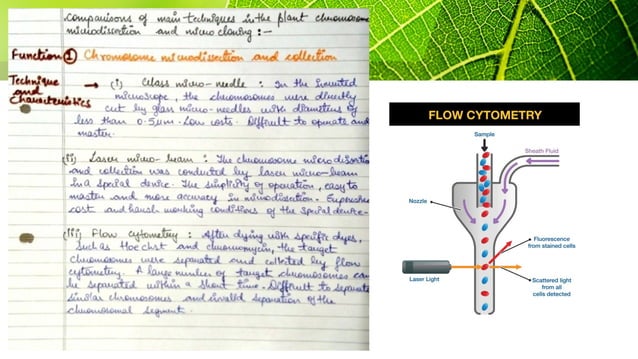 Comparisons of main techniques in the plant chromosome
microdissection and micro cloning :-
Function ① Chromosome microdissection and collection
Technique and Characteristics → (i) Glass micro-needle : In the inverted
microscope, the chromosomes were directly
cut by glass micro-needles with diameters of
less than 0.5µm. Low costs. Difficult to operate and
master.
(ii) Laser micro-beam : The chromosome microdissection
and collection was conducted by laser micro-beam
in a special device. The simplicity of operation, easy to
master and more accuracy in microdissection.
cost and harsh working conditions of the special device.
(iii) Flow cytometry : After dying with specific dyes,
such as Hoechst and chromomycin, the target
chromosomes were separated and collected by flow
cytometry. A large number of target chromosomes can
be separated within a short time. Difficult to separate
similar chromosomes and invalid separation of the
chromosomal segment.
FLOW CYTOMETRY
Sample
Sheath Fluid
Nozzle
Fluorescence
from stained cells
Laser Light
Scattered light
from all
cells detected